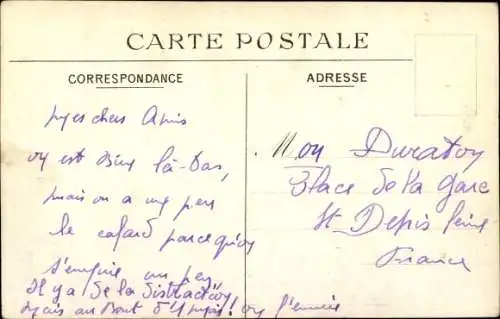 CARTE POSTALE
CORRESPONDANCE
Mes chers Amis
on est bien là-bas,
mais on a un peu
le cafard parce qu'on
s'ennuie un peu
Il y a de la distraction
mais au bout d'1 mois! on s'ennuie
ADRESSE
Mon Duratoy
3 Place de la Gare
St Denis Seine
France